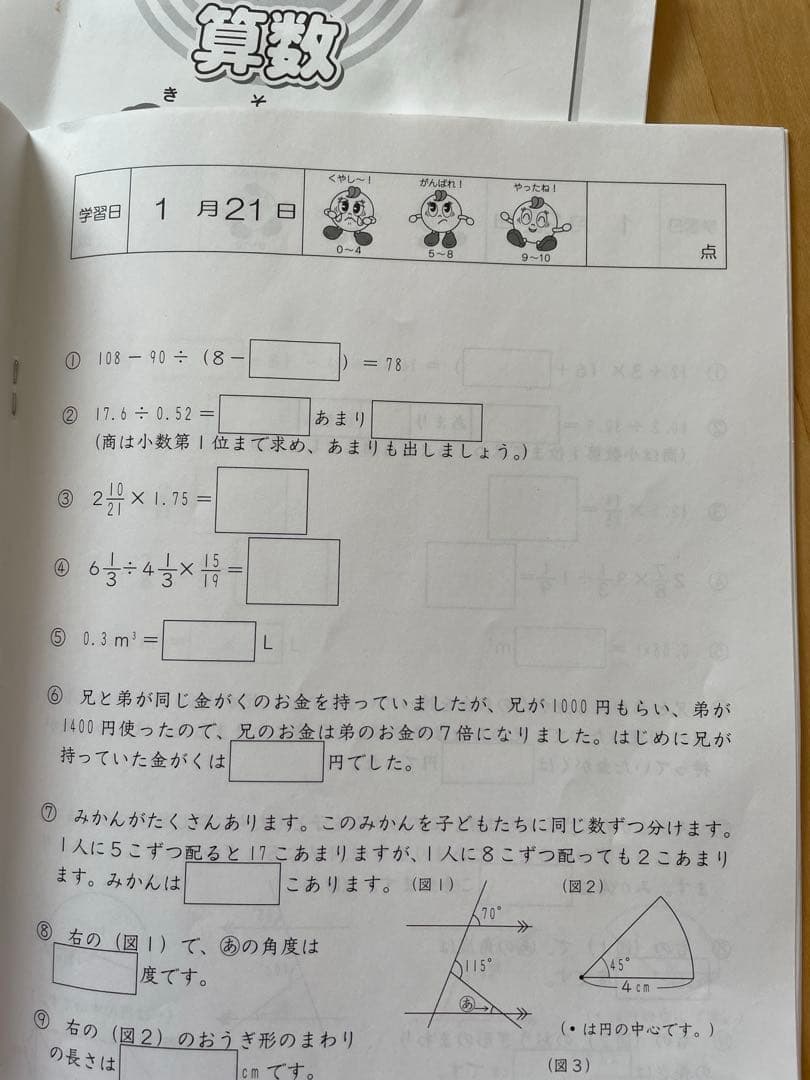 算数
き
学習日 1月21日 くやし～! 0～4 がんばれ! 5～8 やったね! 9～10 点
① 108－90÷(8－　)＝78
② 17.6÷0.52＝　あまり
(商は小数第1位まで求め、あまりも出しましょう。)
③ 2 10/21×1.75＝
④ 6 1/3÷4 1/3×15/19＝
⑤ 0.3m³＝　L
⑥ 兄と弟が同じ金がくのお金を持っていましたが、兄が1000円もらい、弟が
1400円使ったので、兄のお金は弟のお金の7倍になりました。はじめに兄が
持っていた金がくは　円でした。
⑦ みかんがたくさんあります。このみかんを子どもたちに同じ数ずつ分けます。
1人に5こずつ配ると17こあまりますが、1人に8こずつ配っても2こあまり
ます。みかんは　こあります。
(図1)
70°
115°
あ
(図2)
45°
4cm
(•は円の中心です。)
⑧ 右の(図1)で、あの角度は
度です。
⑨ 右の(図2)のおうぎ形のまわり
の長さは　cmです。
(図3)